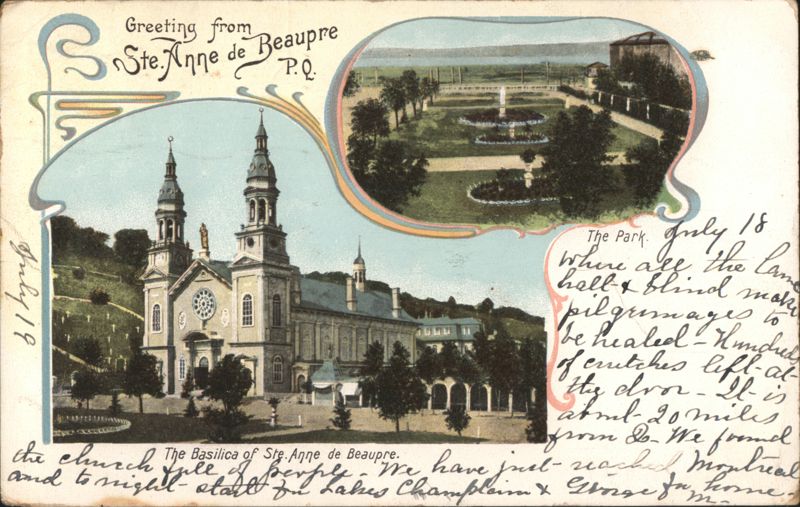 Greeting from
Ste. Anne de Beaupre
P.Q.
The Park.
July 18
Where all the lame
halt & blind make
pilgrimages to
be healed - Hundreds
of crutches left at
the door - It is
about 20 miles
from Q - We found
the church full of people - We have just reached Montreal
and to night start for Lakes Champlain & George for home -
M -
July 19
The Basilica of Ste. Anne de Beaupre.